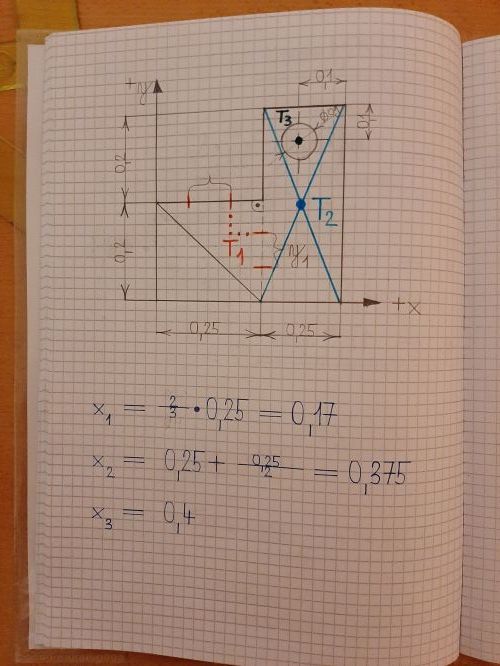 0,1
+y
T3
Ø0,1
0,1
0,2
T2
T1
y1
0,2
+x
0,25 0,25
x1 = 2/3 • 0,25 = 0,17
x2 = 0,25 + 0,25/2 = 0,375
x3 = 0,4